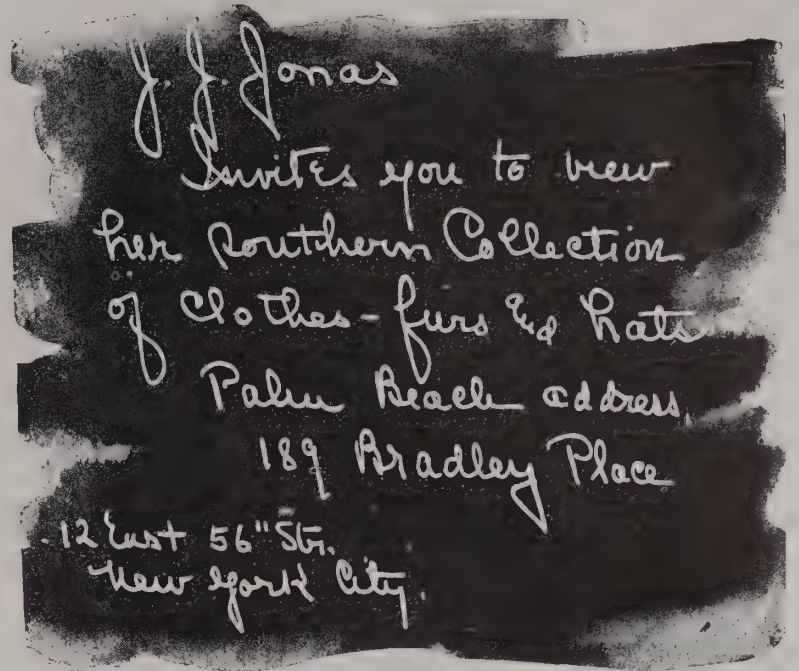 J. J. Jonas
Invites you to view
her Southern Collection
of Clothes - furs and hats
Palm Beach address
189 Bradley Place
12 East 56" Str.
New York City.